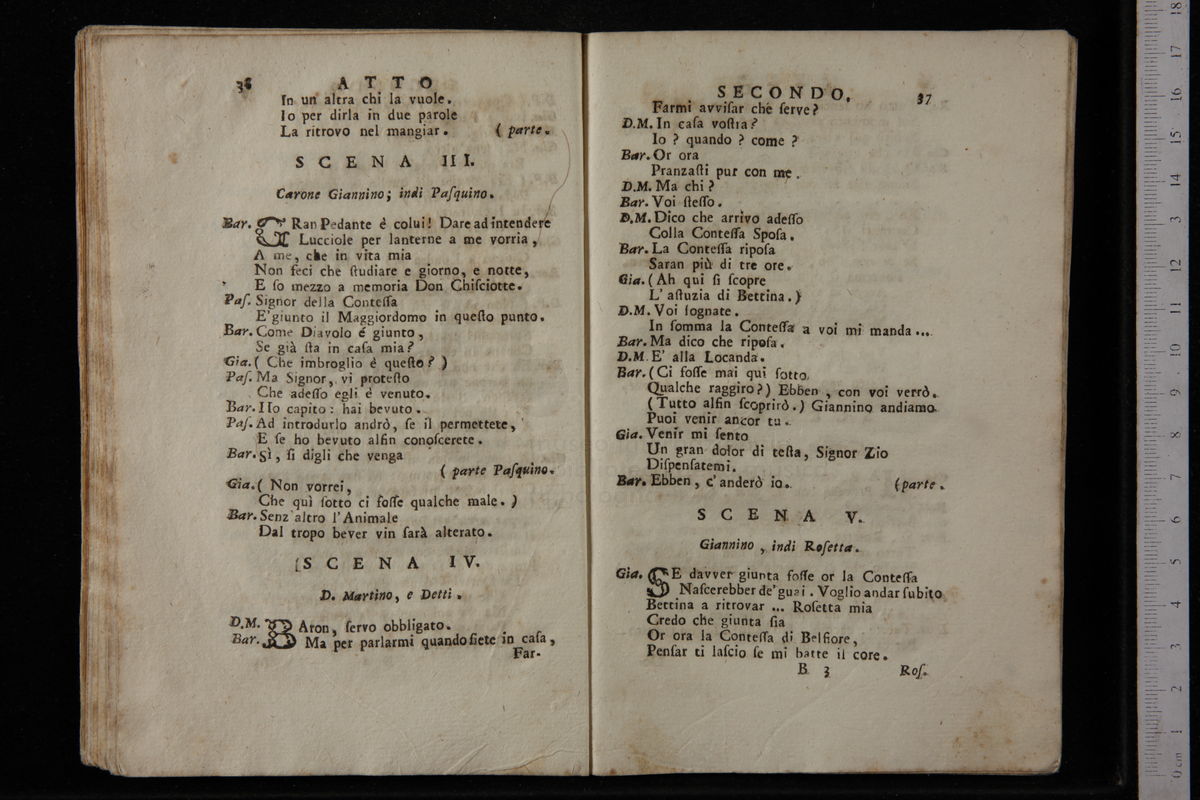 36 ATTO
In un altra chi la vuole.
Io per dirla in due parole
La ritrovo nel mangiar. ( parte.
SCENA III.
Carone Giannino; indi Paſquino.
Bar. GRan Pedante è colui! Dare ad intendere
Lucciole per lanterne a me vorria,
A me, che in vita mia
Non feci che ſtudiare e giorno, e notte,
E ſo mezzo a memoria Don Chiſciotte.
Paſ. Signor della Conteſſa
E' giunto il Maggiordomo in queſto punto.
Bar. Come Diavolo é giunto,
Se già ſta in caſa mia?
Gia. ( Che imbroglio è queſto? )
Paſ. Ma Signor, vi proteſto
Che adeſſo egli é venuto.
Bar. Ho capito: hai bevuto.
Paſ. Ad introdurlo andrò, ſe il permettete,
E ſe ho bevuto alfin conoſcerete.
Bar. Sì, ſi digli che venga
( parte Paſquino.
Gia. ( Non vorrei,
Che quì ſotto ci foſſe qualche male. )
Bar. Senz'altro l'Animale
Dal tropo bever vin ſarà alterato.
SCENA IV.
D. Martino, e Detti.
D.M. BAron, ſervo obbligato.
Bar. Ma per parlarmi quando ſiete in caſa,
Far-
SECONDO. 37
Farmi avviſar che ſerve?
D.M. In caſa voſtra?
Io ? quando ? come ?
Bar. Or ora
Pranzaſti pur con me.
D.M. Ma chi?
Bar. Voi ſteſſo.
D.M. Dico che arrivo adeſſo
Colla Conteſſa Spoſa.
Bar. La Conteſſa ripoſa
Saran più di tre ore.
Gia. ( Ah qui ſi ſcopre
L' aſtuzia di Bettina. )
D.M. Voi ſognate.
In ſomma la Conteſſa a voi mi manda ....
Bar. Ma dico che ripoſa.
D.M. E' alla Locanda.
Bar. (Ci foſſe mai qui ſotto
Qualche raggiro?) Ebben, con voi verrò.
(Tutto alfin ſcoprirò.) Giannino andiamo.
Puoi venir ancor tu.
Gia. Venir mi ſento
Un gran dolor di teſta, Signor Zio
Diſpenſatemi.
Bar. Ebben, c'anderò io. (parte.
SCENA V.
Giannino, indi Roſetta.
Gia. SE davver giunta foſſe or la Conteſſa
Naſcerebber de'guai. Voglio andar ſubito
Bettina a ritrovar ... Roſetta mia
Credo che giunta ſia
Or ora la Conteſſa di Belfiore,
Penſar ti laſcio ſe mi batte il core.
B 3 Roſ.
18 17 16 15 14 13 12 11 10 9 8 7 6 5 4 3 2 1 0 cm